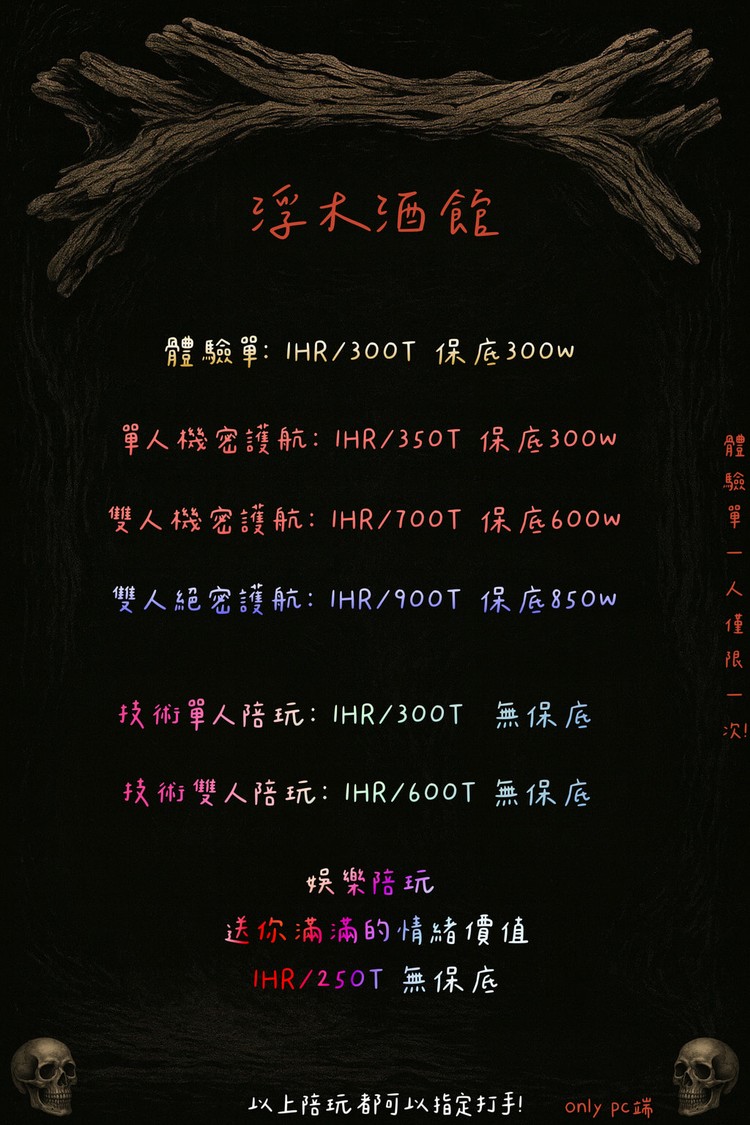 浮木酒館
體驗單: 1HR/300T 保底300w
單人機密護航: 1HR/350T 保底300w
雙人機密護航: 1HR/700T 保底600w
雙人絕密護航: 1HR/900T 保底850w
體驗單一人僅限一次!
技術單人陪玩: 1HR/300T 無保底
技術雙人陪玩: 1HR/600T 無保底
娛樂陪玩
送你滿滿的情緒價值
1HR/250T 無保底
以上陪玩都可以指定打手!
only pc端